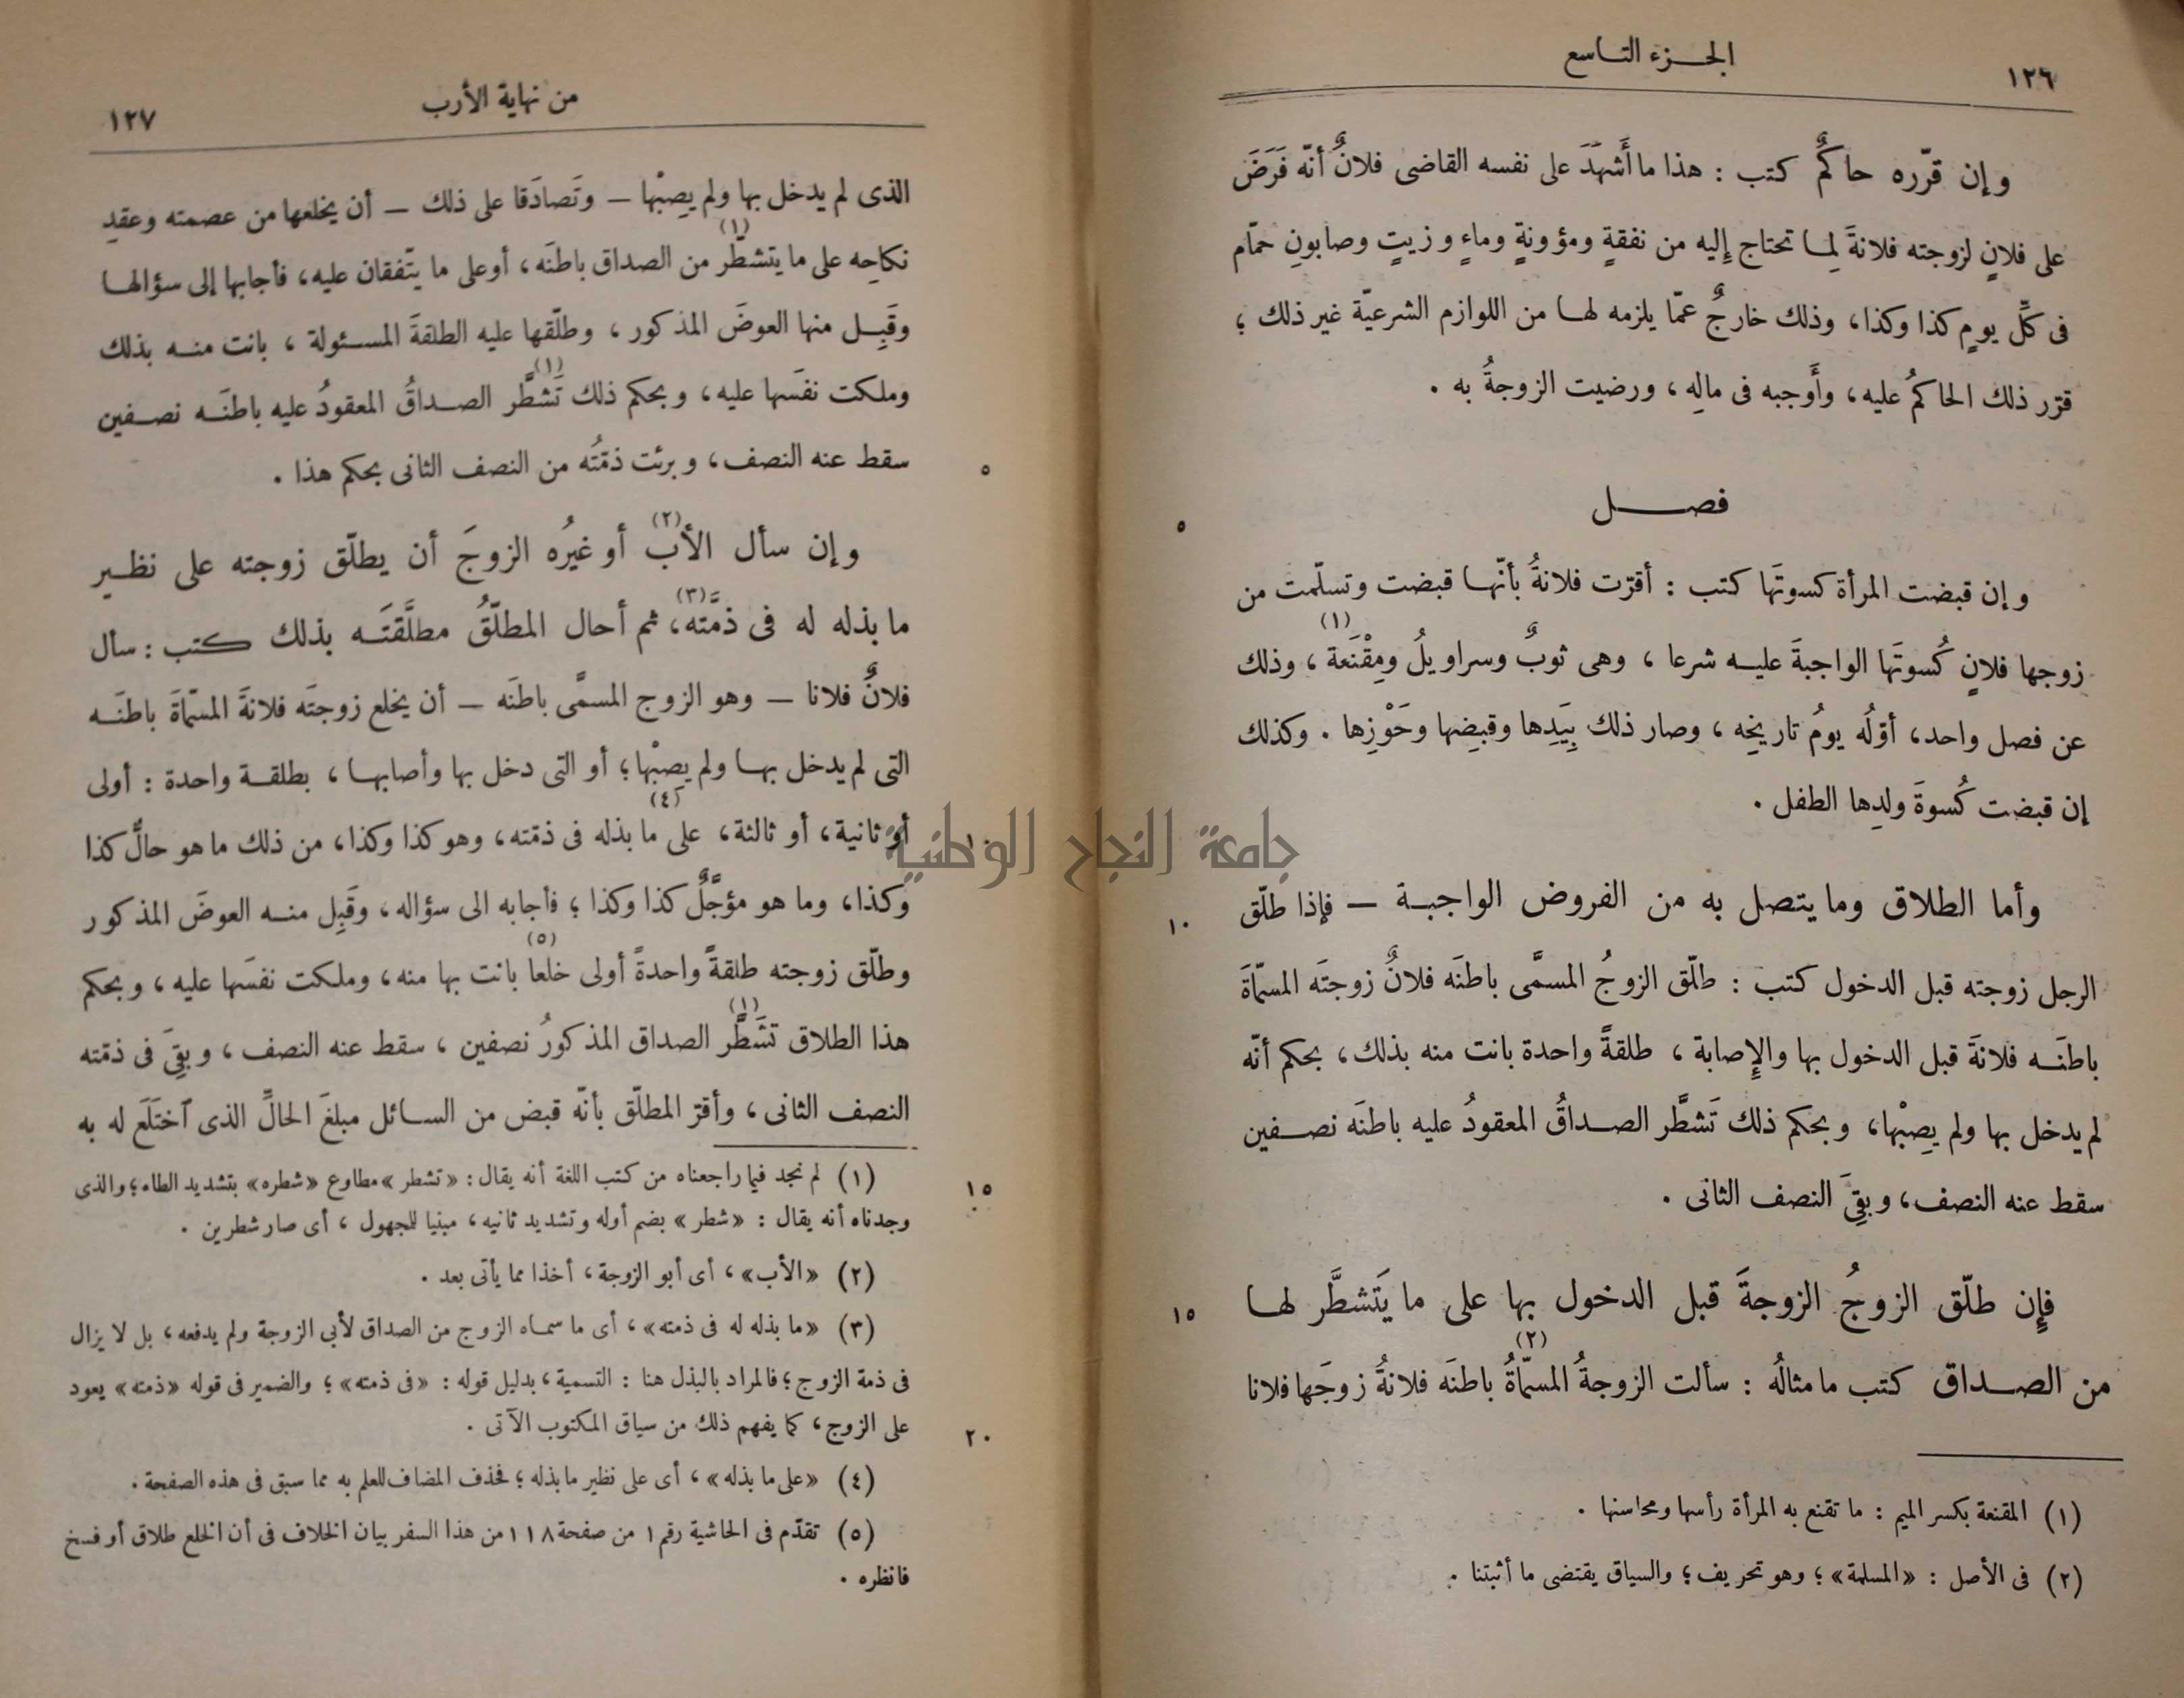 ١٢٦
الجـزء التـاسع
وإن قرّره حاكمٌ كتب : هذا ما أَشهَدَ على نفسه القاضى فلانٌ أنّه فَرَضَ
على فلانٍ لزوجته فلانةَ لِمـا تحتاج إليه من نفقةٍ ومؤونةٍ وماءٍ وزيتٍ وصابونِ حمّام
فى كلِّ يومٍ كذا وكذا، وذلك خارجٌ عمّا يلزمه لهـا من اللوازم الشرعيّة غير ذلك ؛
قرّر ذلك الحاكمُ عليه، وأَوجبه فى مالِه ، ورضيت الزوجةُ به .
٥
فصـــل
وإن قبضت المرأة كسوتَها كتب : أقرّت فلانةُ بأنّهـا قبضت وتسلّمت من
زوجها فلانٍ كُسوتَها الواجبةَ عليـه شرعا ، وهى ثوبٌ وسراويلُ ومِقْنَعة (١) ، وذلك
عن فصل واحد، أوّلُه يومُ تاريخِه ، وصار ذلك بِيَدِها وقبضِها وحَوْزِها . وكذلك
إن قبضت كُسوةَ ولدِها الطفل .
وأما الطلاق وما يتصل به من الفروض الواجبـة — فإذا طلّق
١٠
الرجل زوجته قبل الدخول كتب : طلّق الزوجُ المسمَّى باطنَه فلانٌ زوجتَه المسمّاةَ
باطنَـه فلانةَ قبل الدخول بها والإصابة ، طلقةً واحدة بانت منه بذلك، بحكم أنّه
لم يدخل بها ولم يصِبْها، وبحكم ذلك تَشطَّر الصـداقُ المعقودُ عليه باطنَه نصـفين
سقط عنه النصف، وبقِىَ النصف الثانى .
فإن طلّق الزوجُ الزوجةَ قبل الدخول بها على ما يَتَشطَّر لهـا
١٥
من الصـداق كتب ما مثالُه : سألت الزوجةُ المسمّاةُ (٢) باطنَه فلانةُ زوجَها فلانا
(١) المقنعة بكسر الميم : ما تقنع به المرأة رأسها ومحاسنها .
(٢) فى الأصل : «المسلمة» ؛ وهو تحريف ؛ والسياق يقتضى ما أثبتنا .
من نهاية الأرب
١٢٧
الذى لم يدخل بها ولم يصِبْها — وتَصادَقا على ذلك — أن يخلعها من عصمته وعقدِ
نكاحِه على ما يتشطّر (١) من الصداق باطنَه ، أو على ما يتّفقان عليه ، فأجابها إلى سؤالهـا
وقَبِـل منها العوضَ المذكور ، وطلّقها عليه الطلقةَ المسـئولة ، بانت منـه بذلك
وملكت نفسَها عليه ، وبحكم ذلك تَشطَّر (١) الصـداقُ المعقودُ عليه باطنَـه نصـفين
سقط عنه النصف ، وبرئت ذمّتُه من النصف الثانى بحكم هذا .
٥
وإن سأل الأب (٢) أو غيرُه الزوجَ أن يطلّق زوجته على نظـير
ما بذله له فى ذمَّته (٣) ، ثم أحال المطلّقُ مطلَّقَتَـه بذلك كتب : سأل
فلانٌ فلانا — وهو الزوج المسمَّى باطنَه — أن يخلع زوجتَه فلانةَ المسمّاةَ باطنَـه
التى لم يدخل بهـا ولم يصِبْها ؛ أو التى دخل بها وأصابهـا ، بطلقـة واحدة : أولى
أو ثانية ، أو ثالثة ، على ما بذله (٤) فى ذمّته ، وهو كذا وكذا ، من ذلك ما هو حالٌّ كذا
١٠
وكذا، وما هو مؤجَّلٌ كذا وكذا ؛ فأجابه الى سؤاله ، وقَبِل منـه العوضَ المذكور
وطلّق زوجته طلقةً واحدةً أولى خلعا (٥) بانت بها منه ، وملكت نفسَها عليه ، وبحكم
هذا الطلاق تشَطَّر (١) الصداق المذكورُ نصفين ، سقط عنه النصف ، وبقِىَ فى ذمّته
النصف الثانى ، وأقرّ المطلّق بأنّه قبض من السـائل مبلغَ الحالِّ الذى ٱختَلَعَ له به
(١) لم نجد فيما راجعناه من كتب اللغة أنه يقال : «تشطر» مطاوع «شطره» بتشديد الطاء ؛ والذى
١٥
وجدناه أنه يقال : «شطر» بضم أوله وتشديد ثانيه ، مبنيا للمجهول ، أى صار شطرين .
(٢) «الأب» ، أى أبو الزوجة ، أخذا مما يأتى بعد .
(٣) «ما بذله له فى ذمته» ، أى ما سمـاه الزوج من الصداق لأبي الزوجة ولم يدفعه ، بل لا يزال
فى ذمة الزوج ؛ فالمراد بالبذل هنا : التسمية ، بدليل قوله : «فى ذمته» ؛ والضمير فى قوله «ذمته» يعود
على الزوج ، كما يفهم ذلك من سياق المكتوب الآتى .
٢٠
(٤) «على ما بذله» ، أى على نظير ما بذله ؛ فحذف المضاف للعلم به مما سبق فى هذه الصفحة .
(٥) تقدّم فى الحاشية رقم ١ من صفحة ١١٨ من هذا السفر بيان الخلاف فى أن الخلع طلاق أو فسخ
فانظره .
جامعة النجاح الوطنية